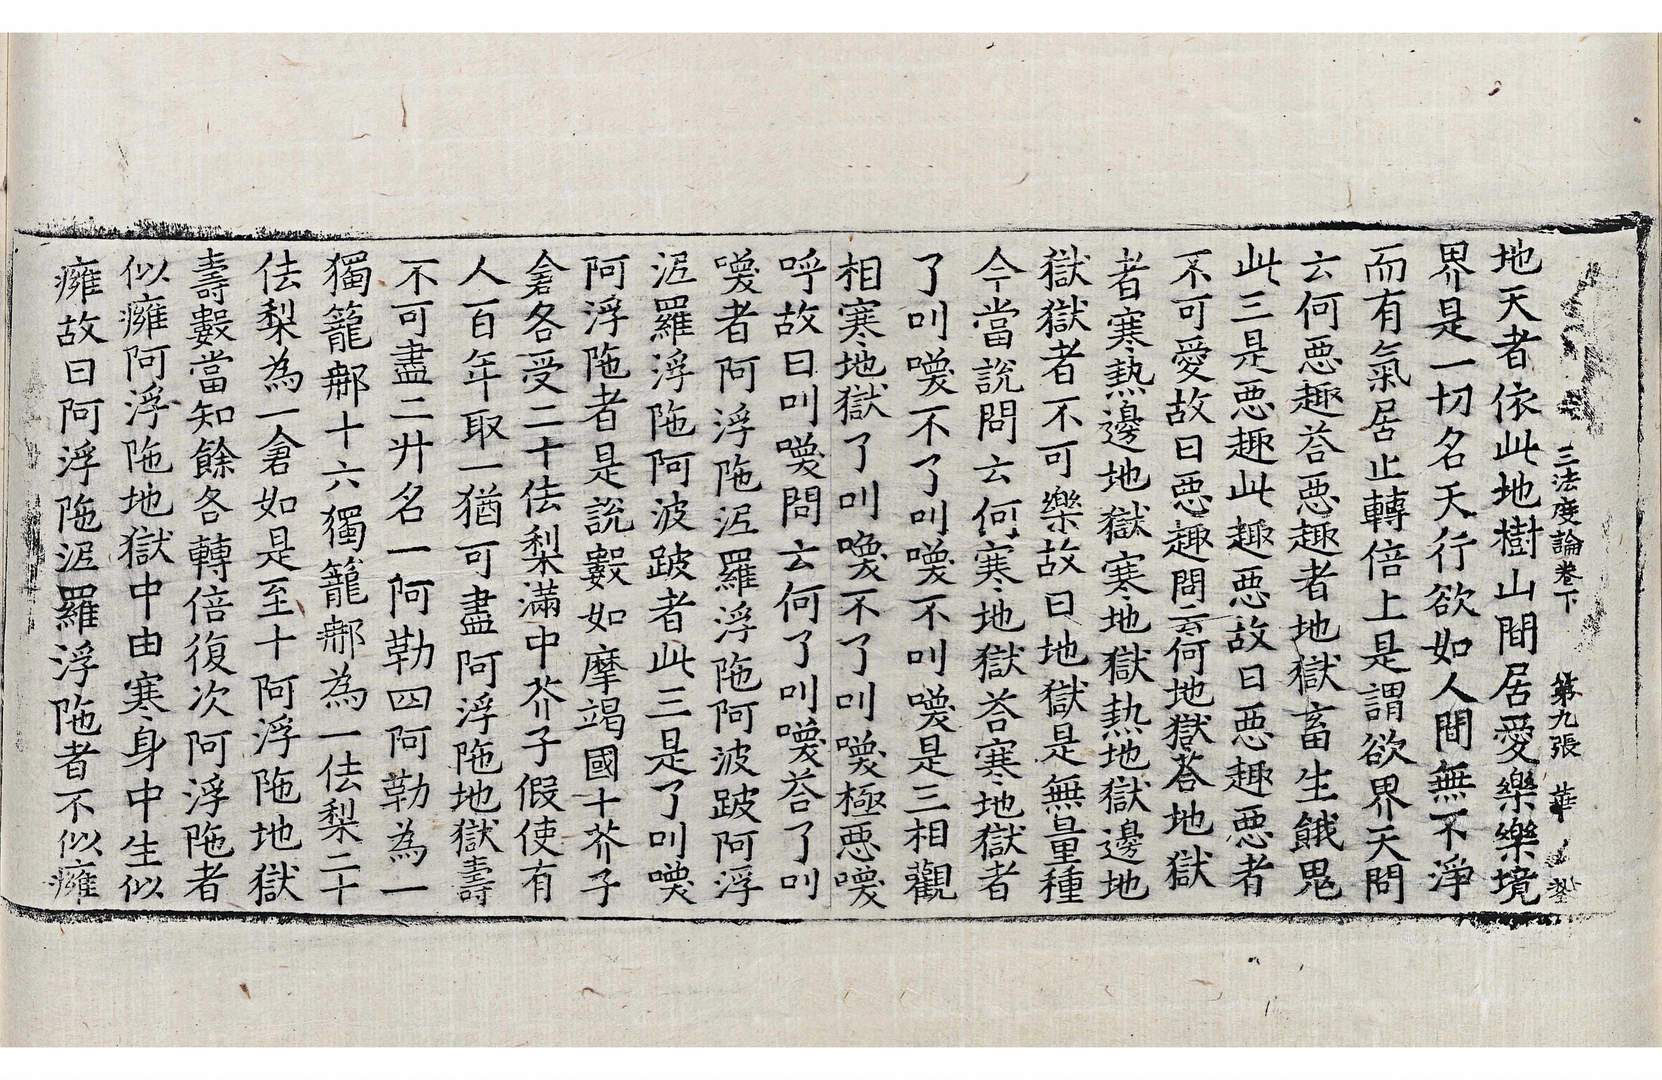 三法度論卷下 第九張 華
地天者依此地樹山間居愛樂樂境
界是一切名天行欲如人間無不淨
而有氣居止轉倍上是謂欲界天問
云何惡趣荅惡趣者地獄畜生餓鬼
此三是惡趣此趣惡故曰惡趣惡者
不可愛故曰惡趣問云何地獄荅地獄
者寒熱邊地獄寒地獄熱地獄邊地
獄獄者不可樂故曰地獄是無量種
今當說問云何寒地獄荅寒地獄者
了叫嘙不了叫嘙不叫嘙是三相觀
相寒地獄了叫嘙不了叫嘙極惡嘙
呼故曰叫嘙問云何了叫嘙荅了叫
嘙者阿浮陁泥羅浮陁阿波跛阿浮
泥羅浮陁阿波跛者此三是了叫嘙
阿浮陁者是說數如摩竭國十芥子
倉各受二十佉梨滿中芥子假使有
人百年取一猶可盡阿浮陁地獄壽
不可盡二升名一阿勒四阿勒為一
獨籠𨚗十六獨籠𨚗為一佉梨二十
佉梨為一倉如是至十阿浮陁地獄
壽數當知餘各轉倍復次阿浮陁者
似癰阿浮陁地獄中由寒身中生似
癰故曰阿浮陁泥羅浮陁者不似癰